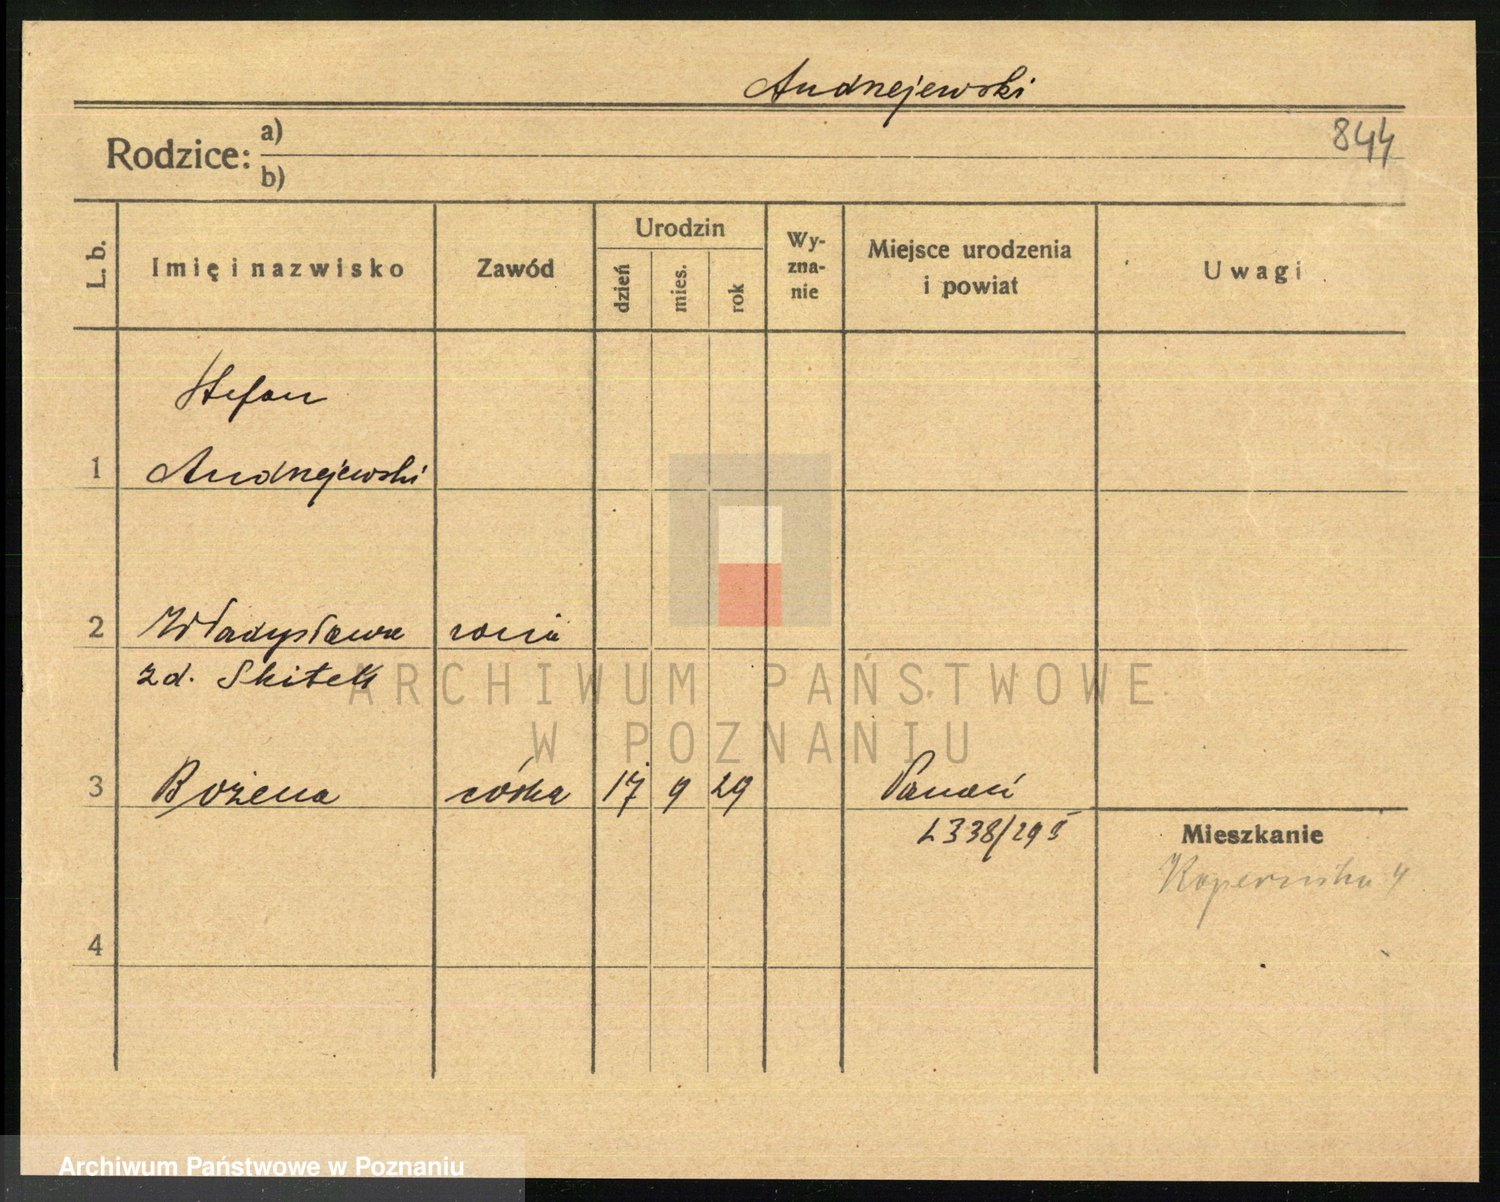 Andrzejewski
844
Rodzice: a)
b)
L. b.
Imię i nazwisko
Zawód
Urodzin
dzień
mies.
rok
Wy-
zna-
nie
Miejsce urodzenia
i powiat
Uwagi
Stefan
1 Andrzejewski
2 Władysława żona
zd. Skitek
ARCHIWUM PAŃSTWOWE
W POZNANIU
3 Bożena córka 17 9 29 Poznań
L 338/29 I
Mieszkanie
Kopernika 4
4
Archiwum Państwowe w Poznaniu